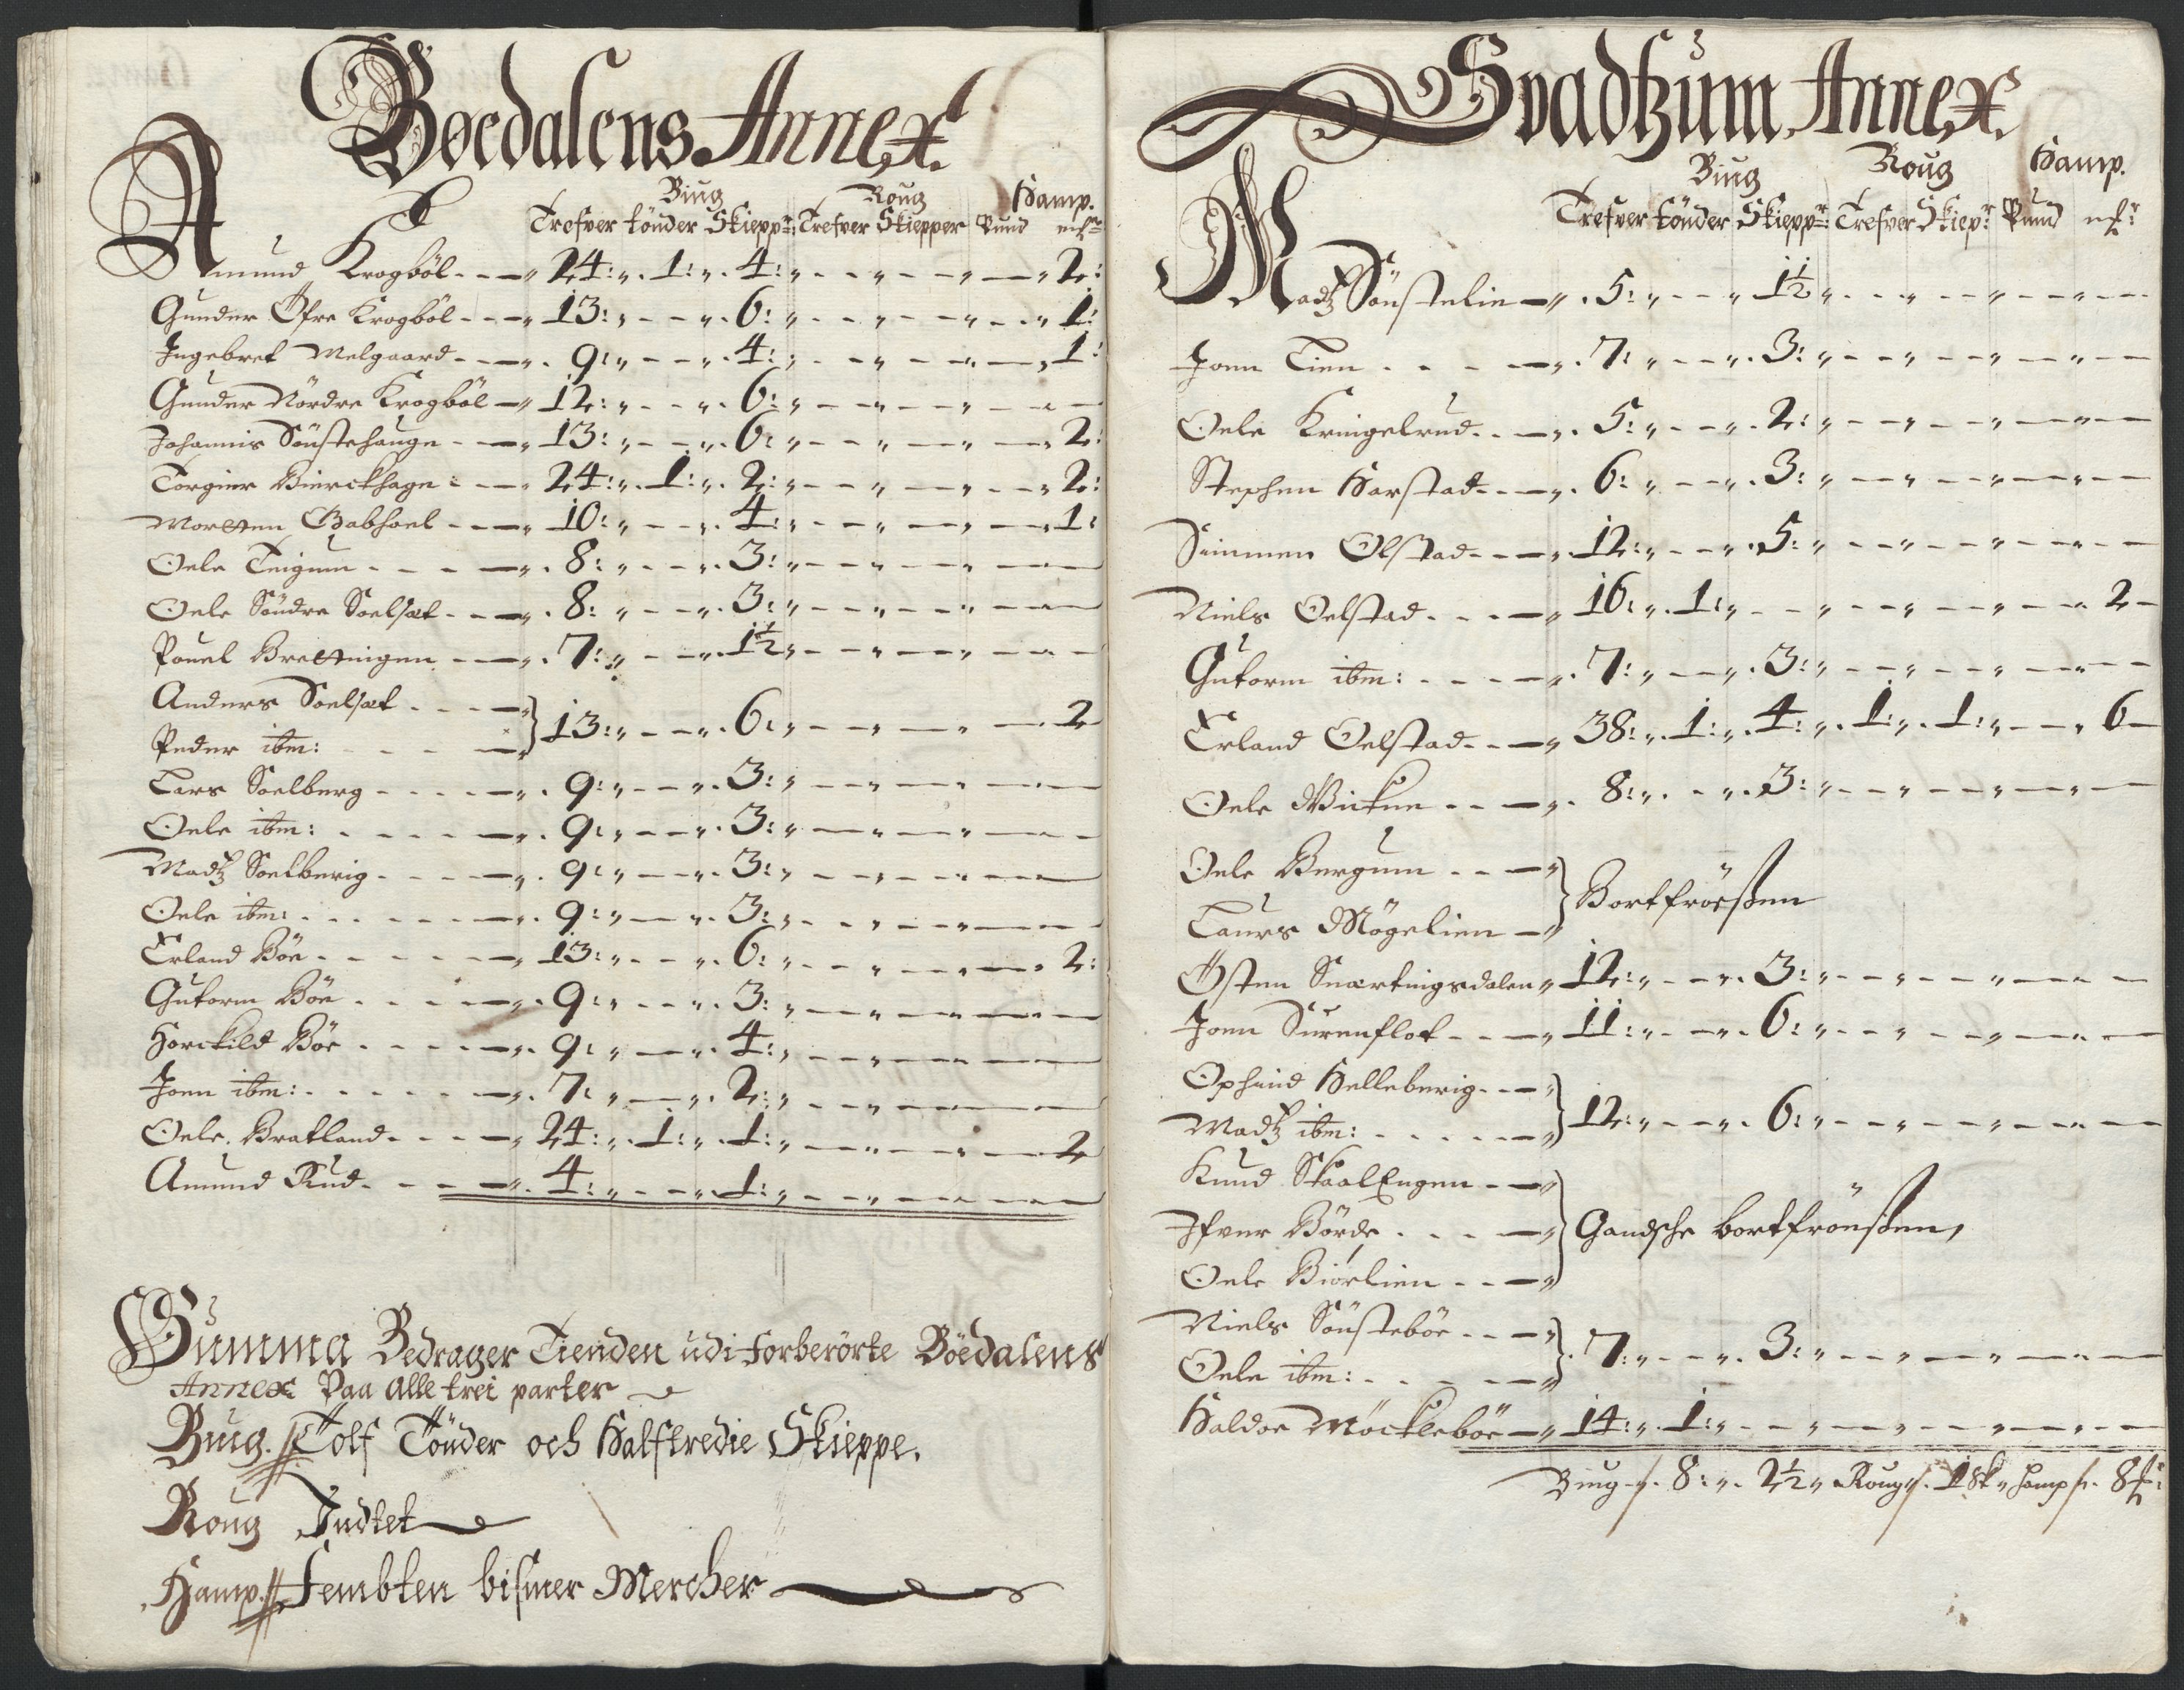 Bøedalens Annex.
Biug Roug Hamp.
Trefver tönder Skiepp: Trefver Skiepper Pund
Amund Krogböl 24: 1: 4: 2:
Gunder Öfre Krogböl 13: 6: 1:
Ingebret Melgaard 9: 4: 1:
Gunder Nördre Krogböl 12: 6:
Johannis Sönstehauge 13: 6: 2:
Torgier Bierckhage 24: 1: 2: 2:
Morten 10: 4: 1:
Oele Teigum 8: 3:
Oele Söndre Soelsæt 8: 3:
Pouel Brettingen 7: 1½
Anders Soelsæt
Peder ibm: } 13: 6: 2
Lars Soelberg 9: 3:
Oele ibm: 9: 3:
Madtz Soelberig 9: 3:
Oele ibm: 9: 3:
Erland Böe 13: 6: 2:
Gutorm Böe 9: 3:
Horckild Böe 9: 4:
Joen ibm: 7: 2:
Oele Bratland 24: 1: 1: 2
Amund Rud 4: 1:
Summa Bedrager Tienden udi forberörte Böedalens
Annex Paa Alle trei parter
Biug. Tolf Tönder och Halftredie Skieppe.
Roug Indtet
Hamp. Fembten bismer Mercher
Svadtzum Annex.
Biug Roug Hamp.
Trefver tönder Skiepp: Trefver Skiep: Pund
Madtz Sönstelie 5: 1½
Joen Lien 7: 3:
Oele Kringelrud 5: 2:
Stephen Harstad 6: 3:
Simmen Olstad 12: 5:
Niels Oelstad 16: 1: 2
Gutorm ibm: 7: 3:
Erland Oelstad 38: 1: 4: 1: 1: 6
Oele Wickne 8: 3:
Oele Bergum
Laurs Mögelien } Bortfroeßen
Östen Snertingsdalen 12: 3:
Joen Surenflot 11: 6:
Ophind Helleberig
Madtz ibm: } 12: 6:
Knud SkaalEngen
Ifver Börde } Gandsche bortfroeßen,
Oele Biörlien
Niels Sönstebör
Oele ibm: } 7: 3:
Haldor Möcklebör 14: 1:
Biug 8: 2½ Roug 1 sk Hamp 8